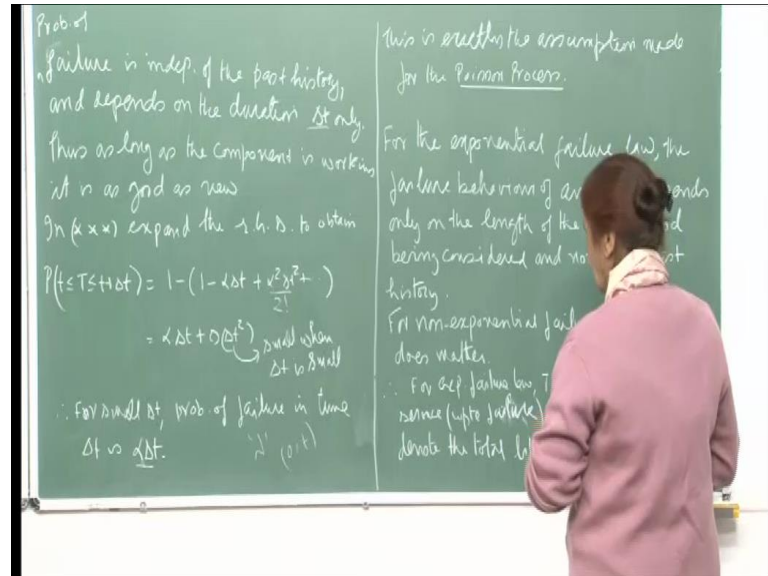 Prob. of
failure is indep. of the past history,
and depends on the duration Δt only.
Thus as long as the component is working
it is as good as new
In (***) expand the r.h.s. to obtain
P(t ≤ T ≤ t+Δt) = 1 - (1 - αΔt + α²Δt²/2! + ...)
= αΔt + O(Δt²) small when
Δt is small
∴ For small Δt, prob. of failure in time
Δt is αΔt.
This is exactly the assumption made
for the Poisson Process.
For the exponential failure law, the
failure behaviour of
only on the length of the
being considered and
history.
For non-exponential
does matter.
∴ For exp. failure law, T
service (upto failure)
denote the total